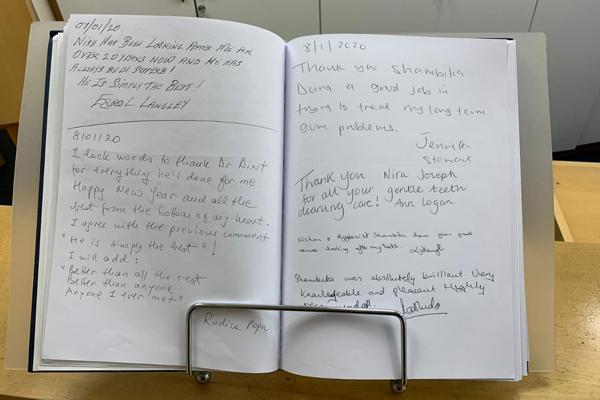 07/01/20.
NISH HAS BEEN LOOKING AFTER ME FOR
OVER 20 YEARS NOW AND HE HAS
ALWAYS BEEN SUPERB!
HE IS SIMPLY THE BEST!
ERROL LANGLEY
8/01/20
I lack words to thank Dr Dixit
for everything he'll done for me
Happy New Year and all the
best from the bottom of my heart.
I agree with the previous comment
"He is simply the best"!
I will add:
"Better than all the rest
Better than anyone
Anyone I ever met"
Rodica Popa
8/1/2020
Thank you Shambika
Doing a good job in
trying to treat my long term
gum problems.
Jennifer
Stewart
Thank you Nira Joseph
for all your gentle teeth
cleaning care! Ann Logan
Nishan & Hygienist Shambika have given great
service looking after my teeth.
Shambika was absolutely brilliant. Very
knowledgeable and pleasant. Highly
recommended.